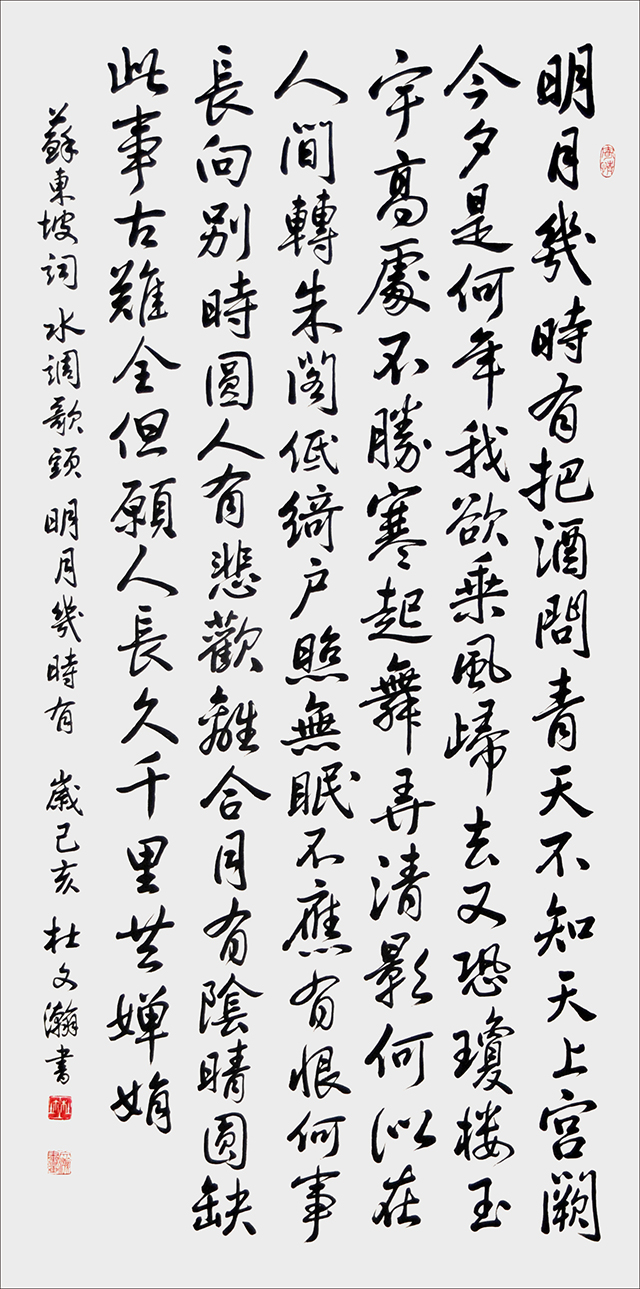 明月幾時有把酒問青天不知天上宮闕
今夕是何年我欲乘風歸去又恐瓊楼玉
宇高處不勝寒起舞弄清影何似在
人間轉朱閣低綺户照無眠不應有恨何事
長向别時圓人有悲歡離合月有陰晴圓缺
此事古難全但願人長久千里共嬋娟
蘇東坡詞 水調歌頭 明月幾時有 歲己亥 杜文瀚書